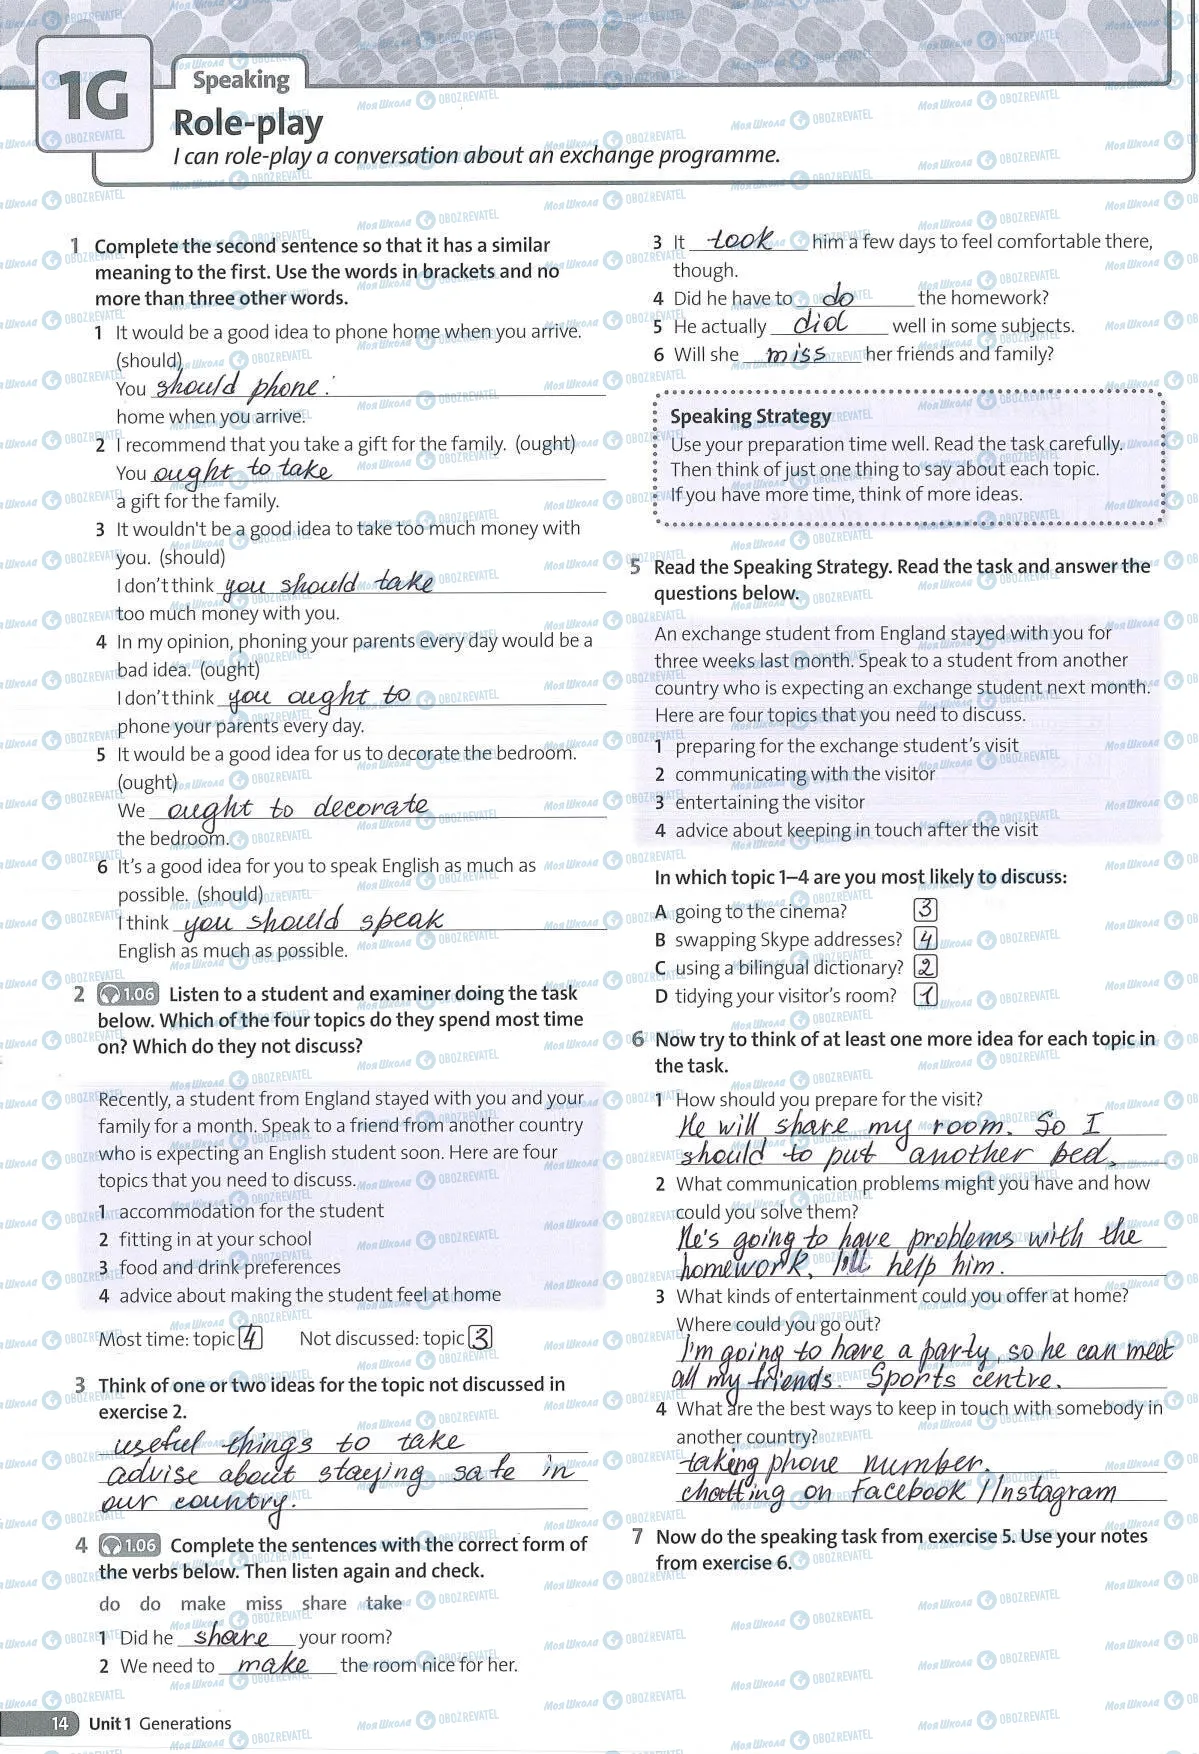 1G
Speaking
Role-play
I can role-play a conversation about an exchange programme.
1 Complete the second sentence so that it has a similar
meaning to the first. Use the words in brackets and no
more than three other words.
1 It would be a good idea to phone home when you arrive.
(should)
You should phone.
home when you arrive.
2 I recommend that you take a gift for the family. (ought)
You ought to take
a gift for the family.
3 It wouldn't be a good idea to take too much money with
you. (should)
I don't think you should take
too much money with you.
4 In my opinion, phoning your parents every day would be a
bad idea. (ought)
I don't think you ought to
phone your parents every day.
5 It would be a good idea for us to decorate the bedroom.
(ought)
We ought to decorate
the bedroom.
6 It's a good idea for you to speak English as much as
possible. (should)
I think you should speak
English as much as possible.
2 1.06 Listen to a student and examiner doing the task
below. Which of the four topics do they spend most time
on? Which do they not discuss?
Recently, a student from England stayed with you and your
family for a month. Speak to a friend from another country
who is expecting an English student soon. Here are four
topics that you need to discuss.
1 accommodation for the student
2 fitting in at your school
3 food and drink preferences
4 advice about making the student feel at home
Most time: topic 4 Not discussed: topic 3
3 Think of one or two ideas for the topic not discussed in
exercise 2.
useful things to take
advise about staying safe in
our country.
4 1.06 Complete the sentences with the correct form of
the verbs below. Then listen again and check.
do do make miss share take
1 Did he share your room?
2 We need to make the room nice for her.
3 It took him a few days to feel comfortable there,
though.
4 Did he have to do the homework?
5 He actually did well in some subjects.
6 Will she miss her friends and family?
Speaking Strategy
Use your preparation time well. Read the task carefully.
Then think of just one thing to say about each topic.
If you have more time, think of more ideas.
5 Read the Speaking Strategy. Read the task and answer the
questions below.
An exchange student from England stayed with you for
three weeks last month. Speak to a student from another
country who is expecting an exchange student next month.
Here are four topics that you need to discuss.
1 preparing for the exchange student's visit
2 communicating with the visitor
3 entertaining the visitor
4 advice about keeping in touch after the visit
In which topic 1–4 are you most likely to discuss:
A going to the cinema? 3
B swapping Skype addresses? 4
C using a bilingual dictionary? 2
D tidying your visitor's room? 1
6 Now try to think of at least one more idea for each topic in
the task.
1 How should you prepare for the visit?
He will share my room. So I
should to put another bed.
2 What communication problems might you have and how
could you solve them?
He's going to have problems with the
homework. I'll help him.
3 What kinds of entertainment could you offer at home?
Where could you go out?
I'm going to have a party, so he can meet
all my friends. Sports centre.
4 What are the best ways to keep in touch with somebody in
another country?
taking phone number.
chatting on Facebook / Instagram
7 Now do the speaking task from exercise 5. Use your notes
from exercise 6.
14 Unit 1 Generations
Моя Школа OBOZREVATEL